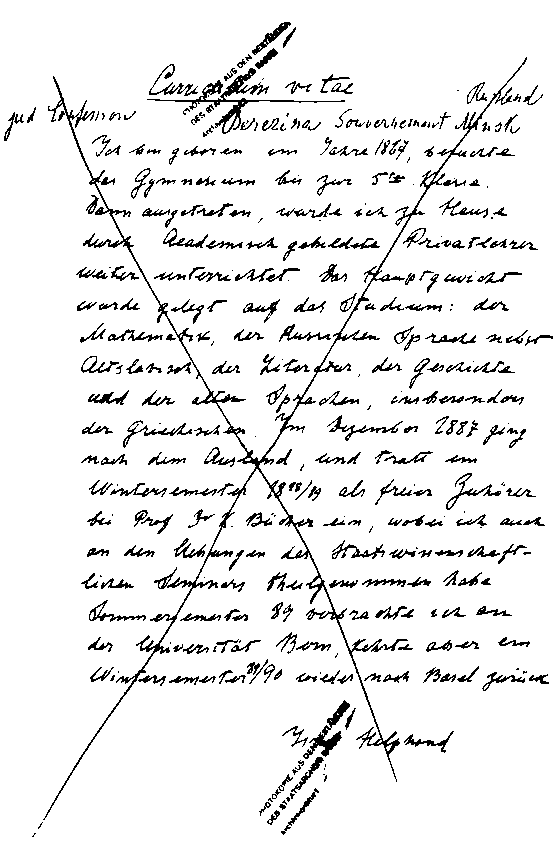 PHOTOKOPIE AUS DEN BESTÄNDEN
DES STAATSARCHIVS BASEL
Curriculum vitae
Rußland
jud Confession
Berezina Gouvernement Minsk
Ich bin geboren im Jahre 1867, besuchte
das Gymnasium bis zur 5ten Klasse.
Dann ausgetreten, wurde ich zu Hause
durch Academisch gebildete Privatlehrer
weiter unterrichtet. Das Hauptgewicht
wurde gelegt auf das Studium: der
Mathematik, der Russischen Sprache nebst
Altslavisch, der Literatur, der Geschichte
und der alten Sprachen, insbesonders
der Griechischen. Im Dezember 1887 ging
nach dem Ausland, und tratt im
Wintersemester 1888/89 als freier Zuhörer
bei Prof Dr K. Bücher ein, wobei ich auch
an den Uebungen des Staatswissenschaft-
lichen Seminars theilgenommen habe
Sommersemester 89 verbrachte ich an
der Universität Bern, kehrte aber im
Wintersemester 89/90 wieder nach Basel zurück
Helphand
PHOTOKOPIE AUS DEN BESTÄNDEN
DES STAATSARCHIVS BASEL